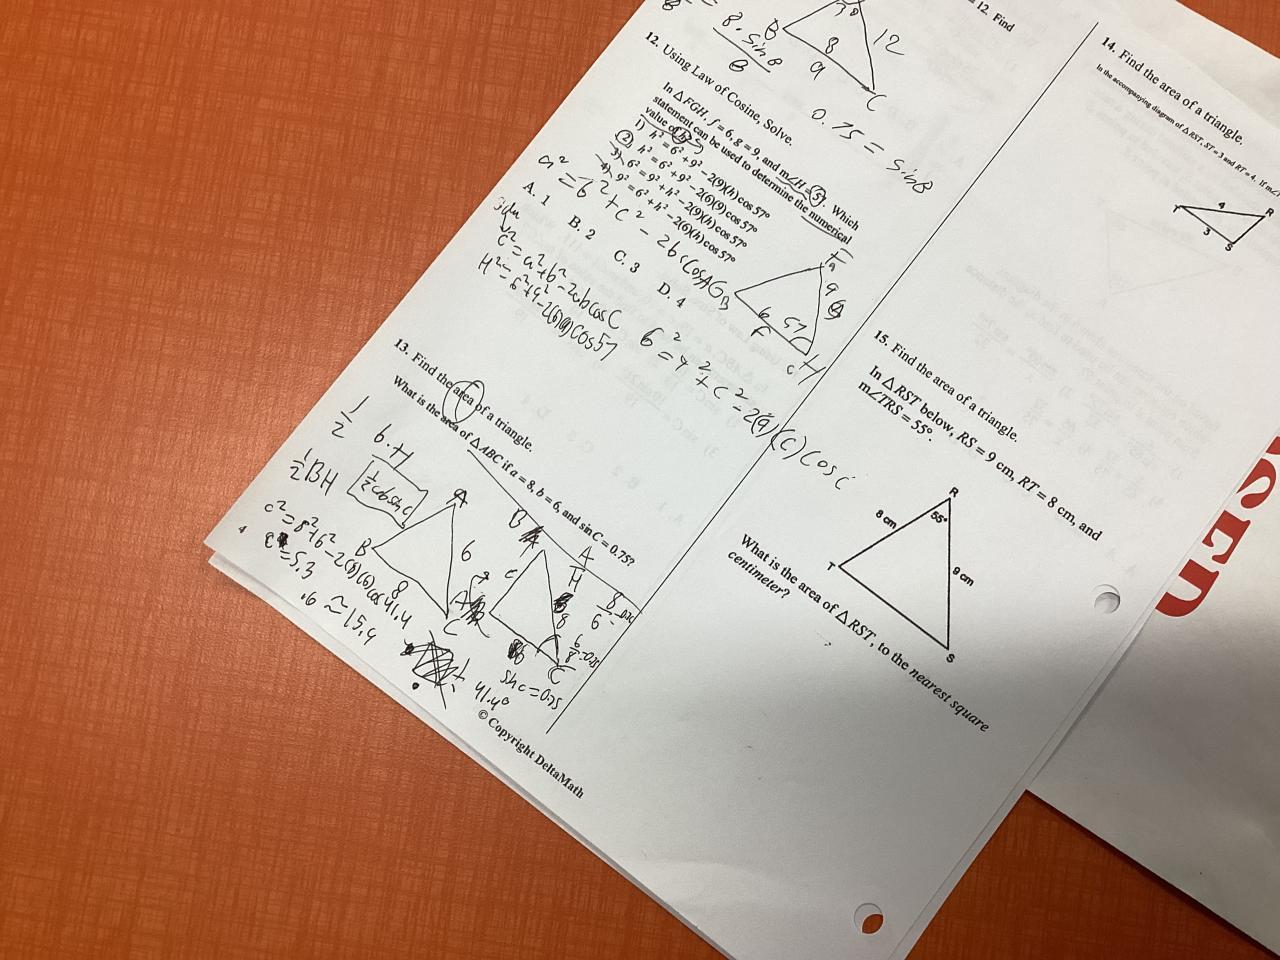 12. Find
B
12
8
a
C
8 · sin B
B
0.75 = sin B
12. Using Law of Cosine, Solve.
In △FGH, f = 6, g = 9, and m∠H = 57. Which
statement can be used to determine the numerical
value of h?
1) h² = 6² + 9² − 2(9)(h) cos 57°
2) h² = 6² + 9² − 2(6)(9) cos 57°
3) 6² = 9² + h² − 2(9)(h) cos 57°
4) 9² = 6² + h² − 2(6)(h) cos 57°
A. 1
B. 2
C. 3
D. 4
a² = b² + c² − 2bc cos A
c² = a² + b² − 2ab cos C
H² = 6² + 9² − 2(6)(9) cos 57
G B
9
6
57
F
H
13. Find the area of a triangle.
What is the area of △ABC if a = 8, b = 6, and sin C = 0.75?
1/2 b·H
1/2 BH
A
B
6
8
C
c² = 8² + 6² − 2(8)(6) cos 41.4
= 5.3
≈ 15.9
B
A
C
8
C
sin c = 0.75
41.4°
4
© Copyright DeltaMath
14. Find the area of a triangle.
In the accompanying diagram of △RST, ST = 3 and RT = 4. If
T
4
R
3
S
15. Find the area of a triangle.
In △RST below, RS = 9 cm, RT = 8 cm, and
m∠TRS = 55°.
R
8 cm
55°
9 cm
T
S
What is the area of △RST, to the nearest square
centimeter?